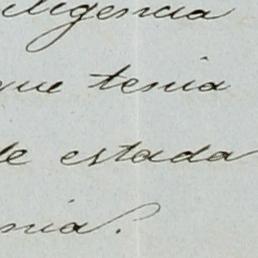 ligencia
que tenia
de estada
nia.